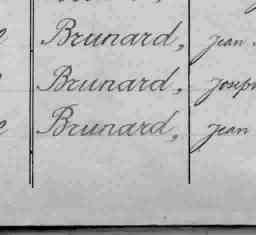 Brunard, Jean
Brunard, Joseph
Brunard, Jean